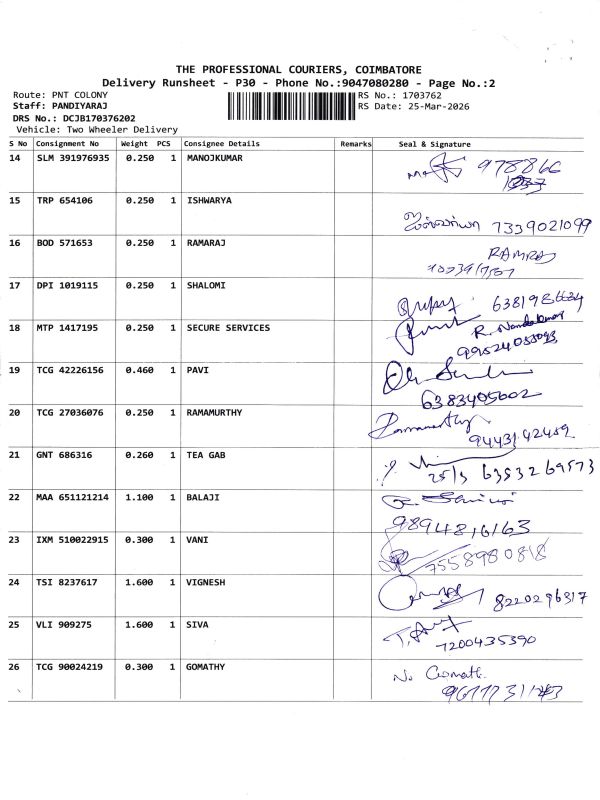 THE PROFESSIONAL COURIERS, COIMBATORE
Delivery Runsheet - P30 - Phone No.:9047080280 - Page No.:2
Route: PNT COLONY
RS No.: 1703762
Staff: PANDIYARAJ
RS Date: 25-Mar-2026
DRS No.: DCJB170376202
Vehicle: Two Wheeler Delivery
S No Consignment No Weight PCS Consignee Details Remarks Seal & Signature
14 SLM 391976935 0.250 1 MANOJKUMAR
978866
15 TRP 654106 0.250 1 ISHWARYA
ஐஸ்வர்யா 7339021099
16 BOD 571653 0.250 1 RAMARAJ
RAMRAJ
17 DPI 1019115 0.250 1 SHALOMI
18 MTP 1417195 0.250 1 SECURE SERVICES
19 TCG 42226156 0.460 1 PAVI
6383405602
20 TCG 27036076 0.250 1 RAMAMURTHY
Ramamurthy
9443142459
21 GNT 686316 0.260 1 TEA GAB
25/3 6353269573
22 MAA 651121214 1.100 1 BALAJI
9894816163
23 IXM 510022915 0.300 1 VANI
7558980818
24 TSI 8237617 1.600 1 VIGNESH
8220296317
25 VLI 909275 1.600 1 SIVA
7200435390
26 TCG 90024219 0.300 1 GOMATHY
N. Gomathi